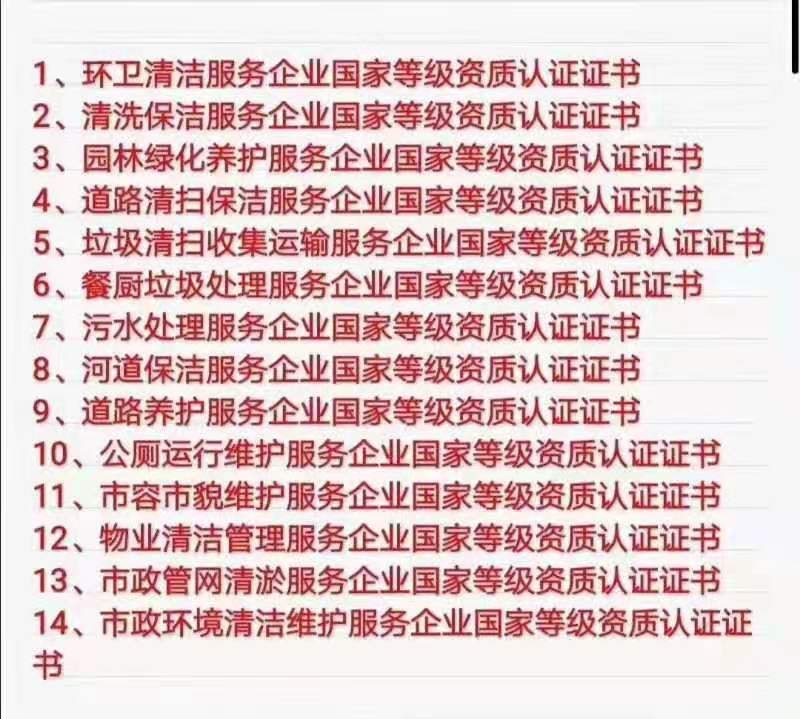 1、环卫清洁服务企业国家等级资质认证证书
2、清洗保洁服务企业国家等级资质认证证书
3、园林绿化养护服务企业国家等级资质认证证书
4、道路清扫保洁服务企业国家等级资质认证证书
5、垃圾清扫收集运输服务企业国家等级资质认证证书
6、餐厨垃圾处理服务企业国家等级资质认证证书
7、污水处理服务企业国家等级资质认证证书
8、河道保洁服务企业国家等级资质认证证书
9、道路养护服务企业国家等级资质认证证书
10、公厕运行维护服务企业国家等级资质认证证书
11、市容市貌维护服务企业国家等级资质认证证书
12、物业清洁管理服务企业国家等级资质认证证书
13、市政管网清淤服务企业国家等级资质认证证书
14、市政环境清洁维护服务企业国家等级资质认证证
书